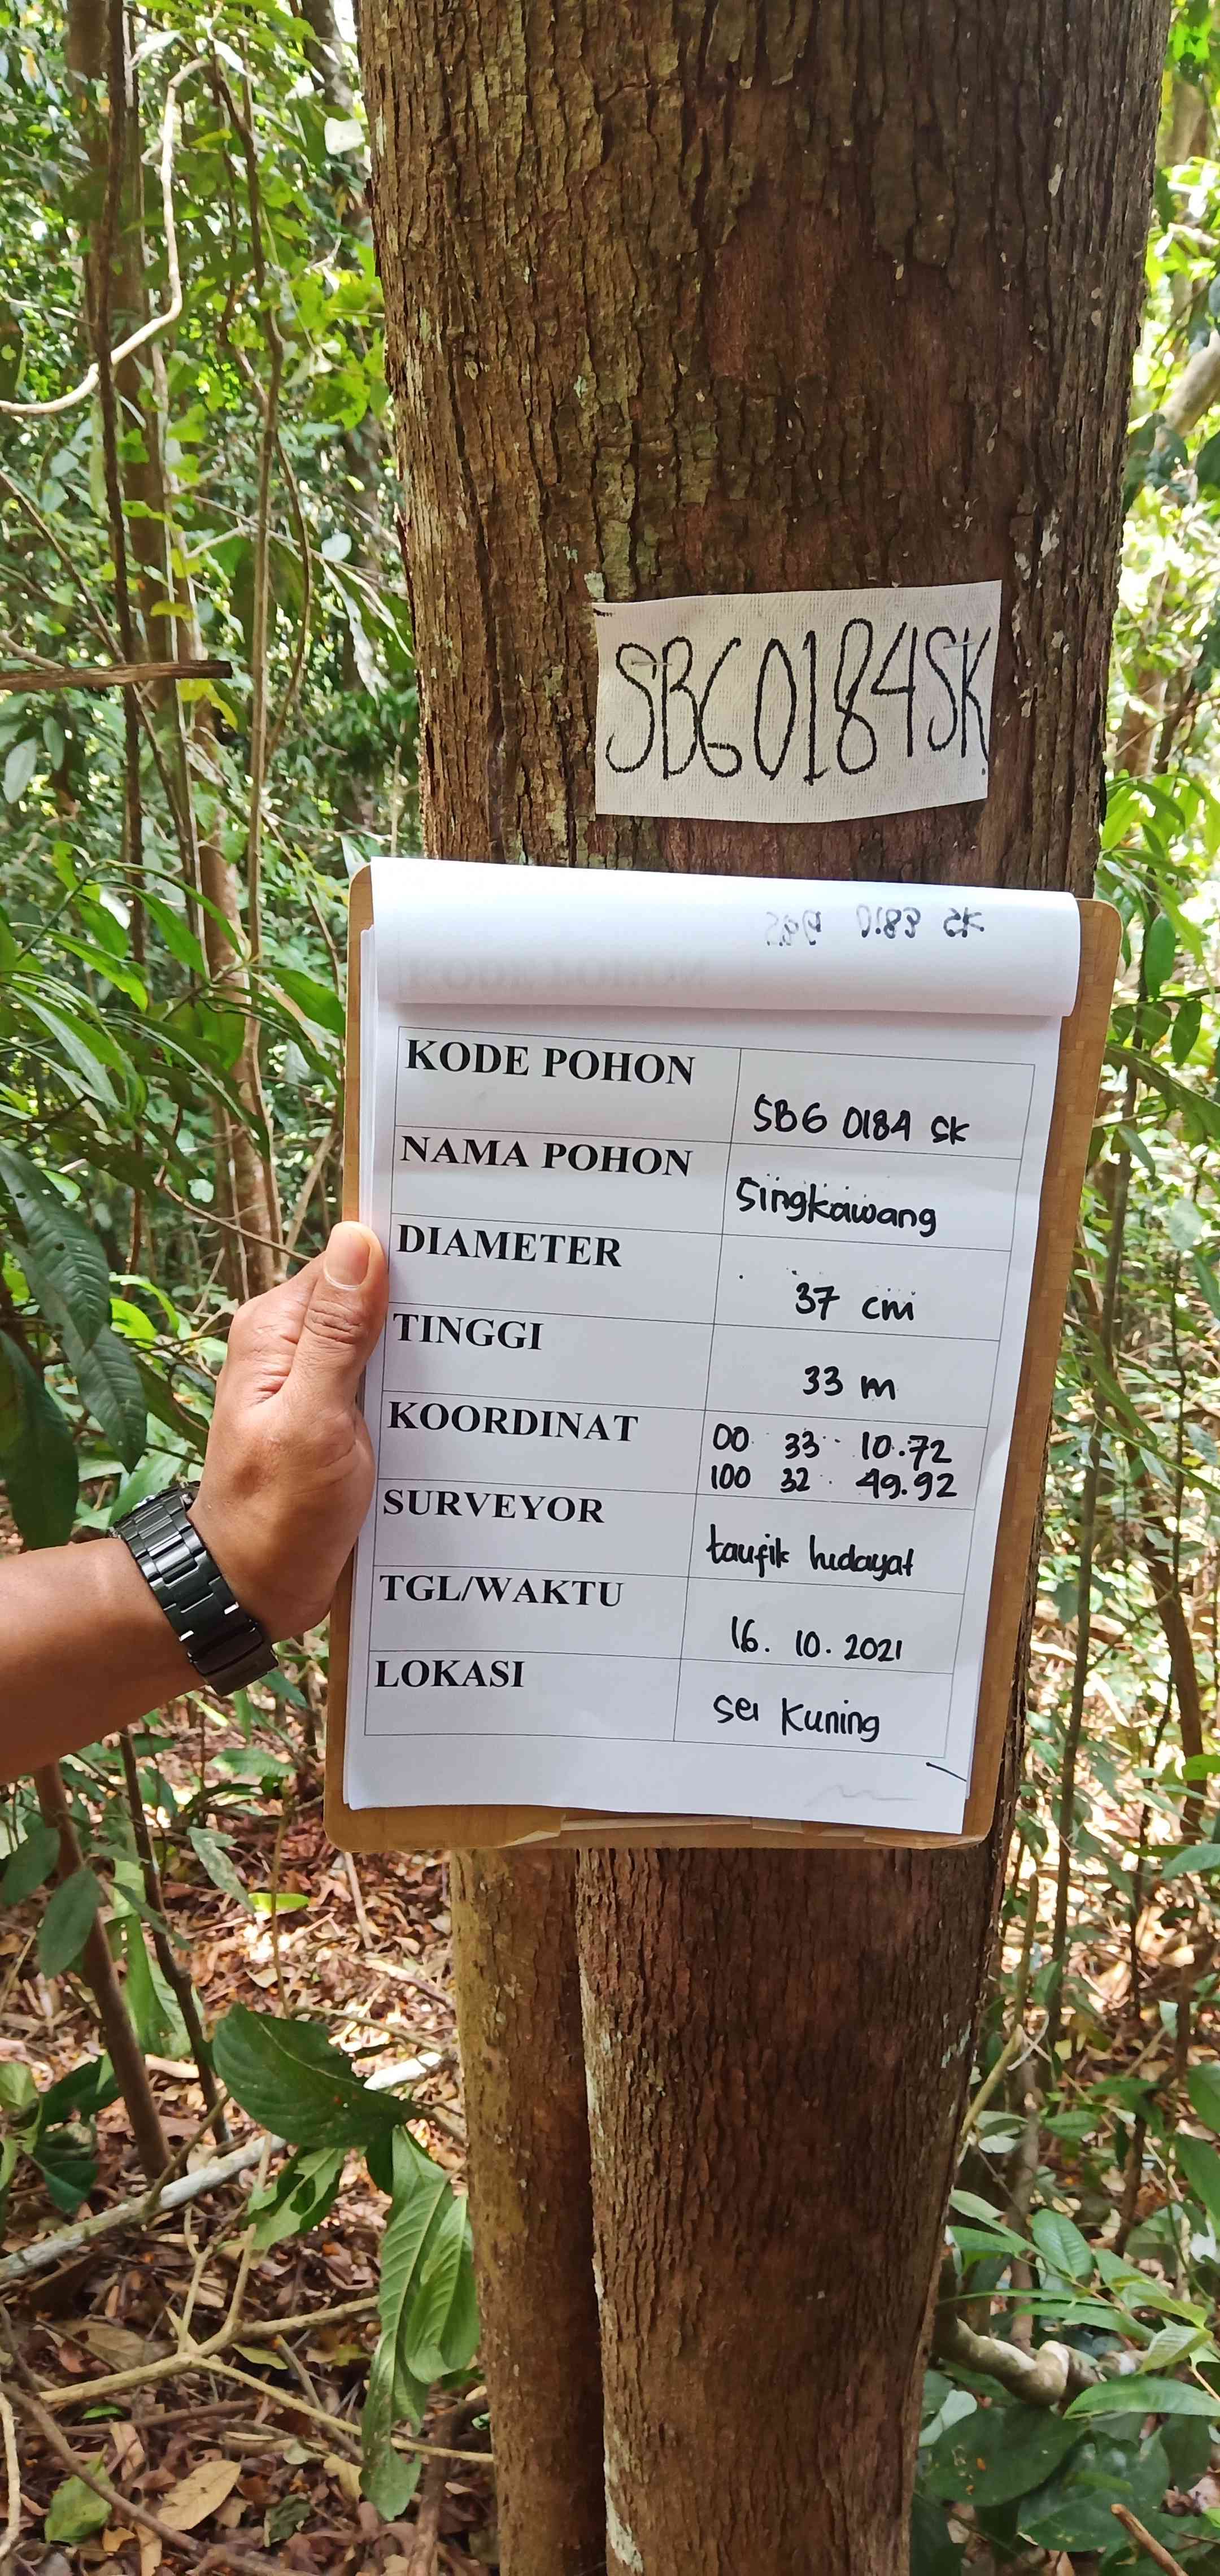 SBG0184SK
KODE POHON SBG 0184 SK
NAMA POHON Singkawang
DIAMETER 37 cm
TINGGI 33 m
KOORDINAT 00 33 10.72
100 32 49.92
SURVEYOR taufik hidayat
TGL/WAKTU 16. 10. 2021
LOKASI Sei Kuning